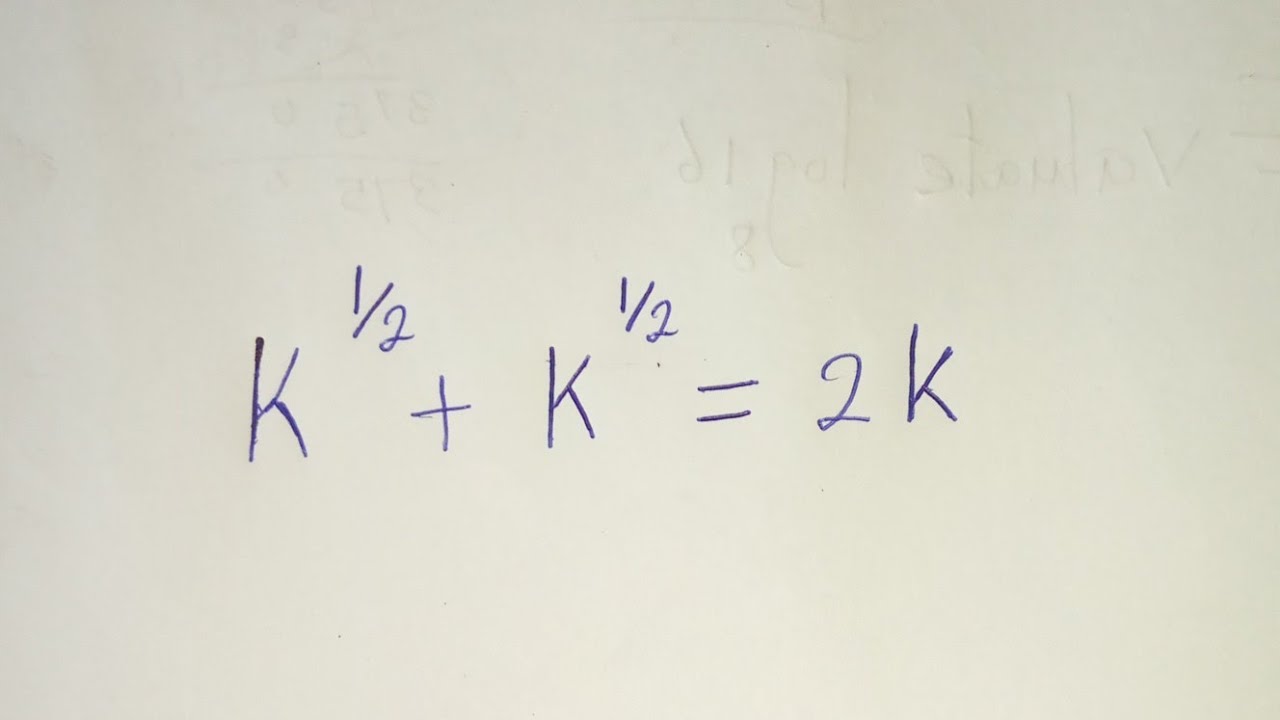 K^{1/2} + K^{1/2} = 2K